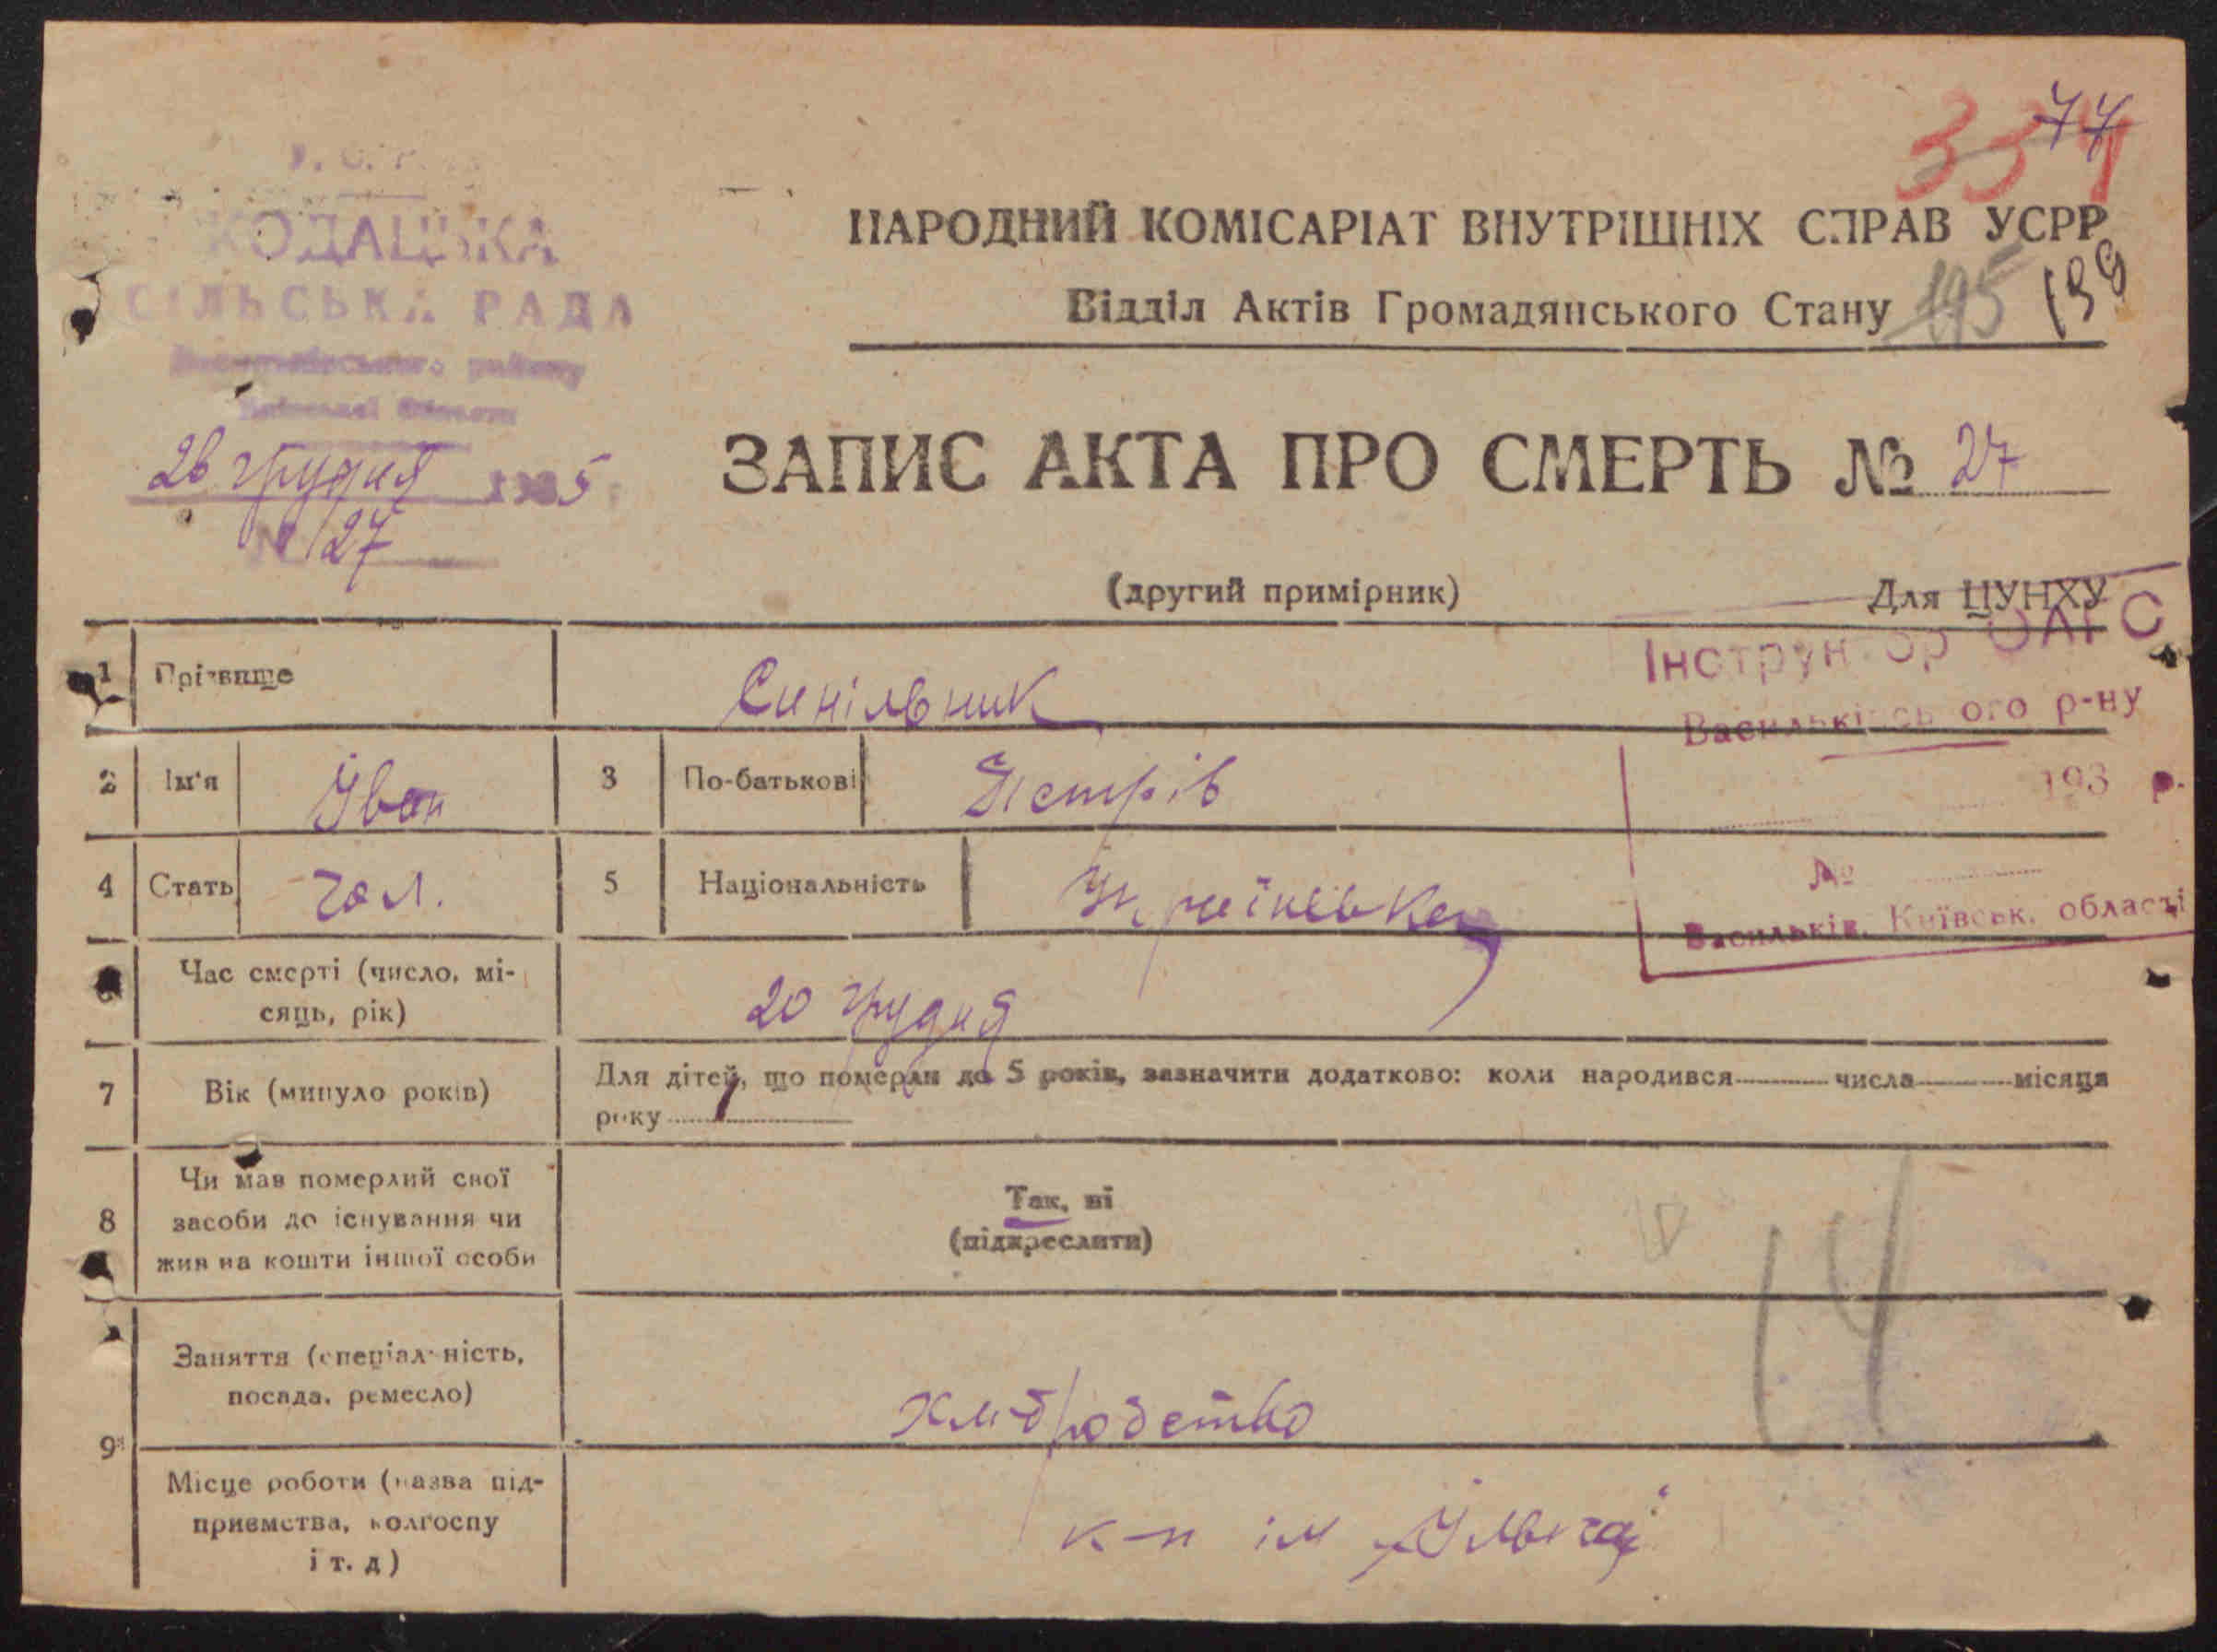 КОДАЦЬКА
СІЛЬСЬКА РАДА
району
26 грудня 1935
№ 27
334
77
НАРОДНИЙ КОМІСАРІАТ ВНУТРІШНІХ СПРАВ УСРР
Відділ Актів Громадянського Стану
195 139
ЗАПИС АКТА ПРО СМЕРТЬ № 27
(другий примірник)
Для ЦУНХУ
Інструктор ОАГС
Васильківського р-ну
193 р.
№
Васильків, Київськ. області
1 Прізвище Синільник
2 Ім'я Йван 3 По-батькові Петрів
4 Стать чол. 5 Національність Українська
Час смерті (число, мі-
сяць, рік) 20 грудня
7 Вік (минуло років) Для дітей, що померли до 5 років, зазначити додатково: коли народився числа місяця
року
8 Чи мав померлий свої
засоби до існування чи
жив на кошти іншої особи
Так, ні
(підкреслити)
14
9 Заняття (спеціальність,
посада, ремесло)
Місце роботи (назва під-
приємства, колгоспу
і т. д)
к-п ім Ільича